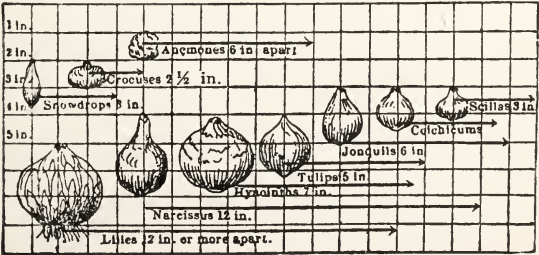 1 in.
2 in.
3 in.
4 in.
5 in.
Anemones 6 in. apart
Crocuses 2 ½ in.
Snowdrops 3 in.
Scillas 3 in.
Colchicums
Jonquils 6 in.
Tulips 5 in.
Hyacinths 7 in.
Narcissus 12 in.
Lilies 12 in. or more apart.